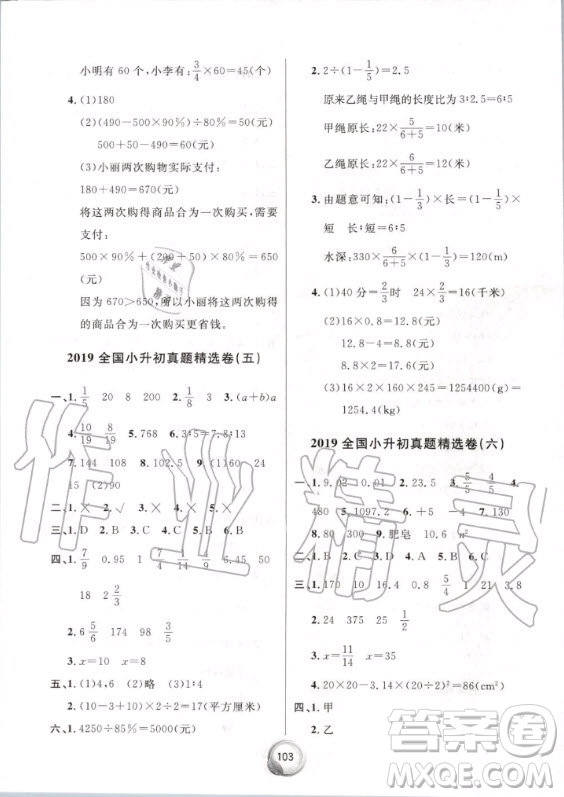 小明有60个，小李有:3/4×60=45(个)
4.(1)180
(2)(490-500×90%)÷80%=50(元)
500+50-490=60(元)
(3)小丽两次购物实际支付:
180+490=670(元)
将这两次购得商品合为一次购买,需要
支付:
500×90%+(200+50)×80%=650
(元)
因为670>650,所以小丽将这两次购得
的商品合为一次购买更省钱。
2019全国小升初真题精选卷(五)
一、1.1/5 20 8 200 2.1/8 3 3.(a+b)a
4.10/19 8/19 5.768 6.3:5=7:
7.144 108 8. 9.102.5 10.(1)60 24
15(2)90
二、1.× 2.√ 3.× 4.× 5.×
三、1.D 2.B 3.B 4.D 5.B
四、1.7/9 0.95 1 6.45 50
18 2 2/3
2.6 5/6 174 98 33
3.x=10 x=8
五、1.(1)4,6 (2)略 2.17(平方厘米)
六、1.4250÷85%=5000(元)
2.2÷(1-1/5)=2.5
原来乙绳与甲绳的长度比为3:2.5=6:5
甲绳原长:22×5/(6+5)=10(米)
乙绳原长:22×6/(6+5)=12(米)
3.由题意可知:(1-1/3)×长=(1-1/5)×
短 长:短=6:5
水深:330×6/(6+5)×(1-1/3)=120(m)
4.(1)40分=2/3时 24×2/3=16(千米)
(2)16×0.8=12.8
12.8-4=8.8
8.8×2=17.6(元)
(3)16×2×0.16×365×671=1254400(g)
1254400g=1254.4(kg)
2019全国小升初真题精选卷(六)
一、1.9.02 0.01 2.23.5 3.5/5 5/4 4.
480 5.1092 6.+5 -4 7.130
8.80 300 9.肥皂 10.15
二、1.√ 2.× 3.× 4.× 5.×
三、1.170 10 16.4 0.4 1 21 3.8
2.24 375 25 1/2
3.x=11/14 x=35
4.20×20-3.14×(20÷2)²=86(cm²)
四、1.甲
2.乙
103
作业精灵
答案圈
MXQE.COM